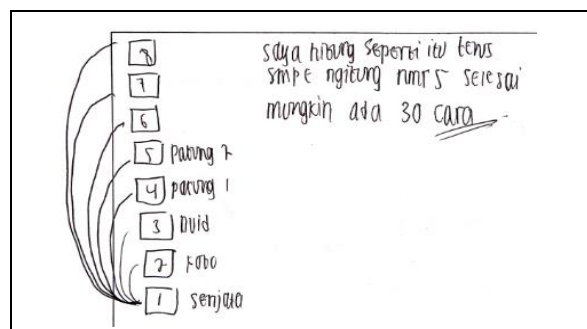 8
7
6
5 patung 2
4 patung 1
3 Duid
2 Robo
1 senjata
saya hitung seperti itu terus
smpe ngitung nmr 5 selesai
mungkin ada 30 cara